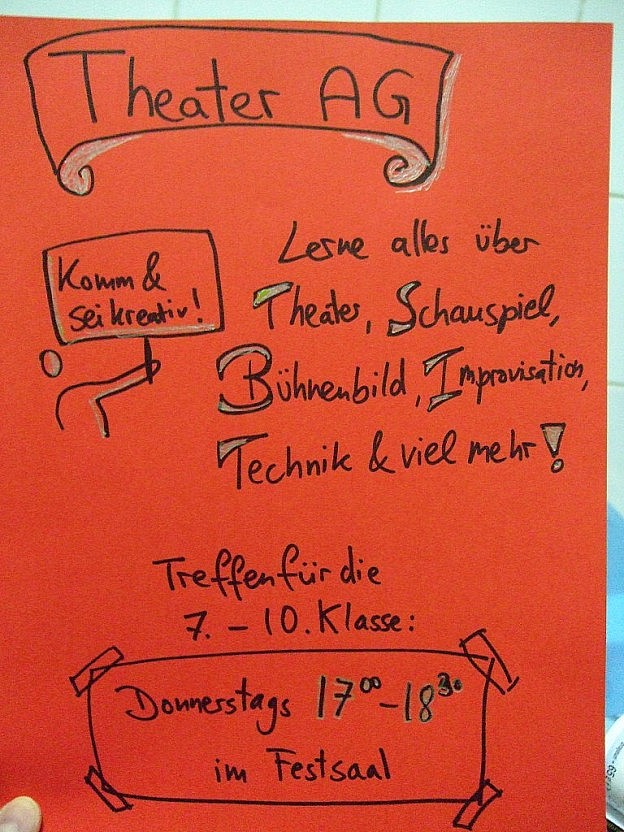 Theater AG
Komm &
sei kreativ!
Lerne alles über
Theater, Schauspiel,
Bühnenbild, Improvisation,
Technik & viel mehr!
Treffen für die
7. - 10. Klasse:
Donnerstags 17⁰⁰-18³⁰
im Festsaal